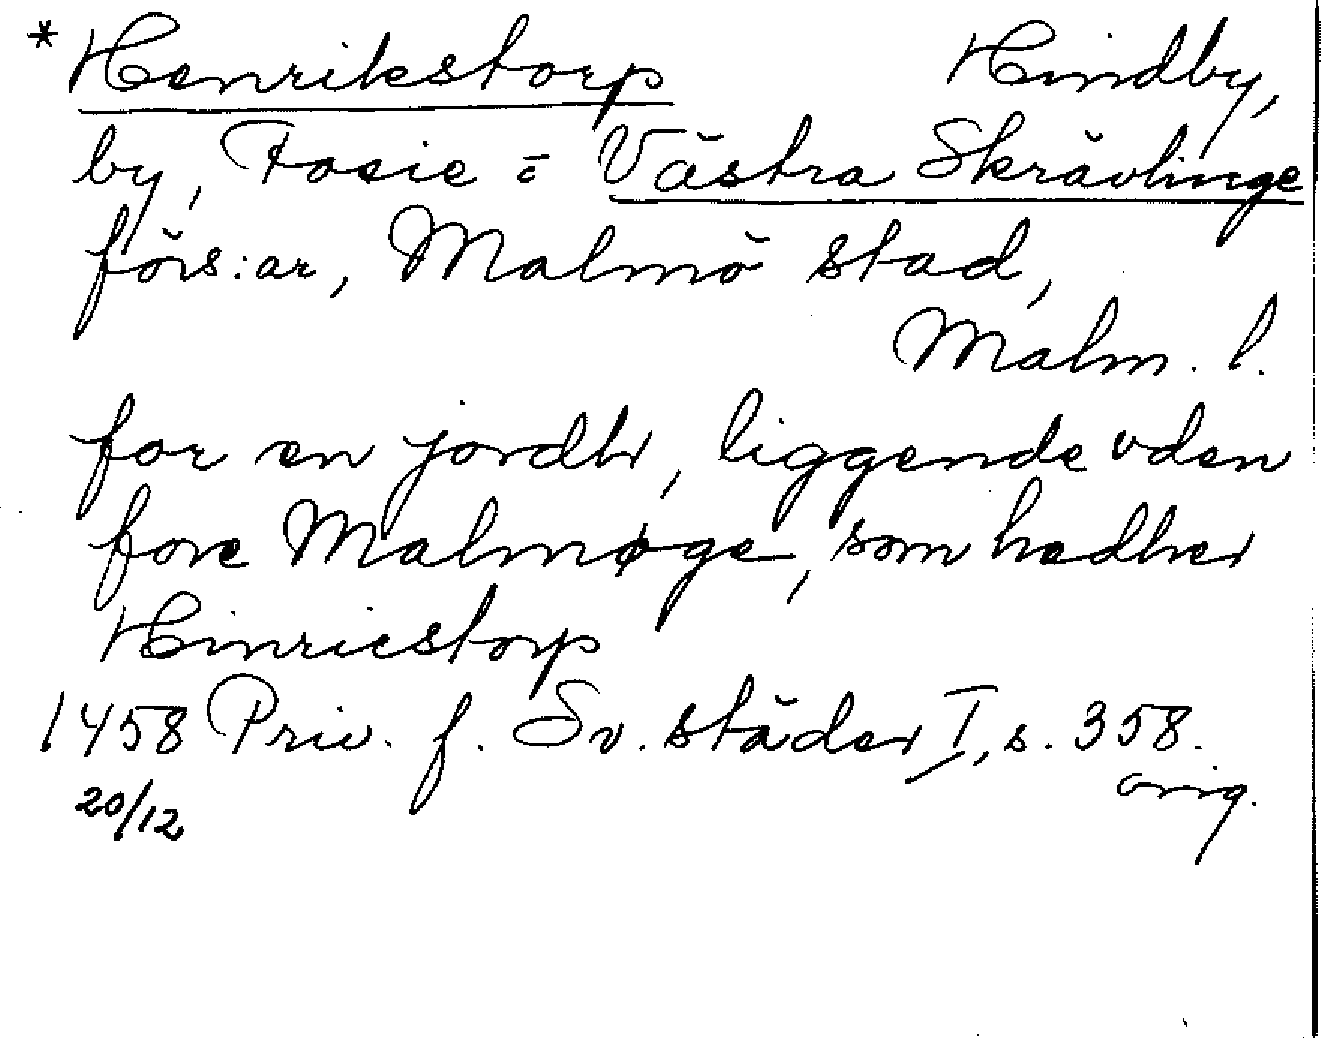 * Henrikstorp Hindby,
by, Fosie o Västra Skrävlinge
förs:ar, Malmö stad,
Malm. l.
for en jordh, liggende vden
fore Malmøge, som hedher
Hinricstorp
1458 Priv. f. Sv. städer I, s. 358.
20/12 orig.